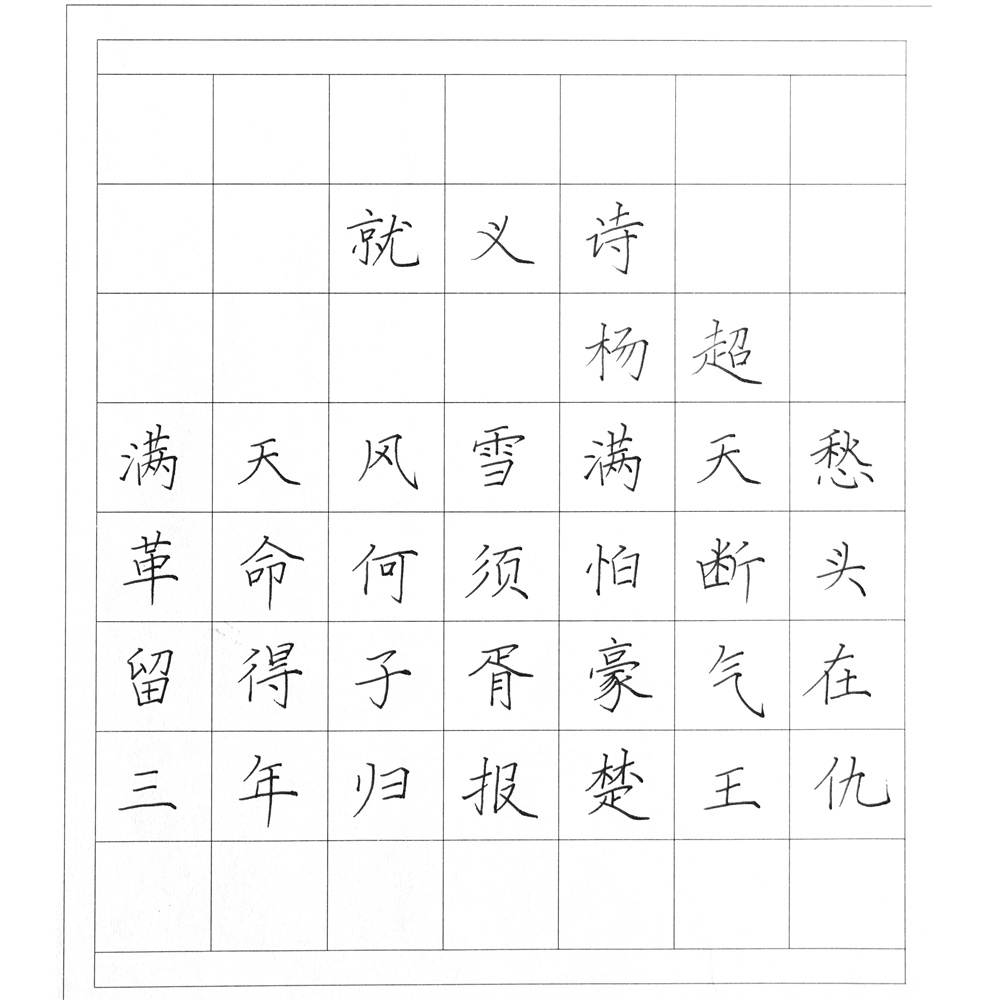 就义诗
杨超
满天风雪满天愁
革命何须怕断头
留得子胥豪气在
三年归报楚王仇